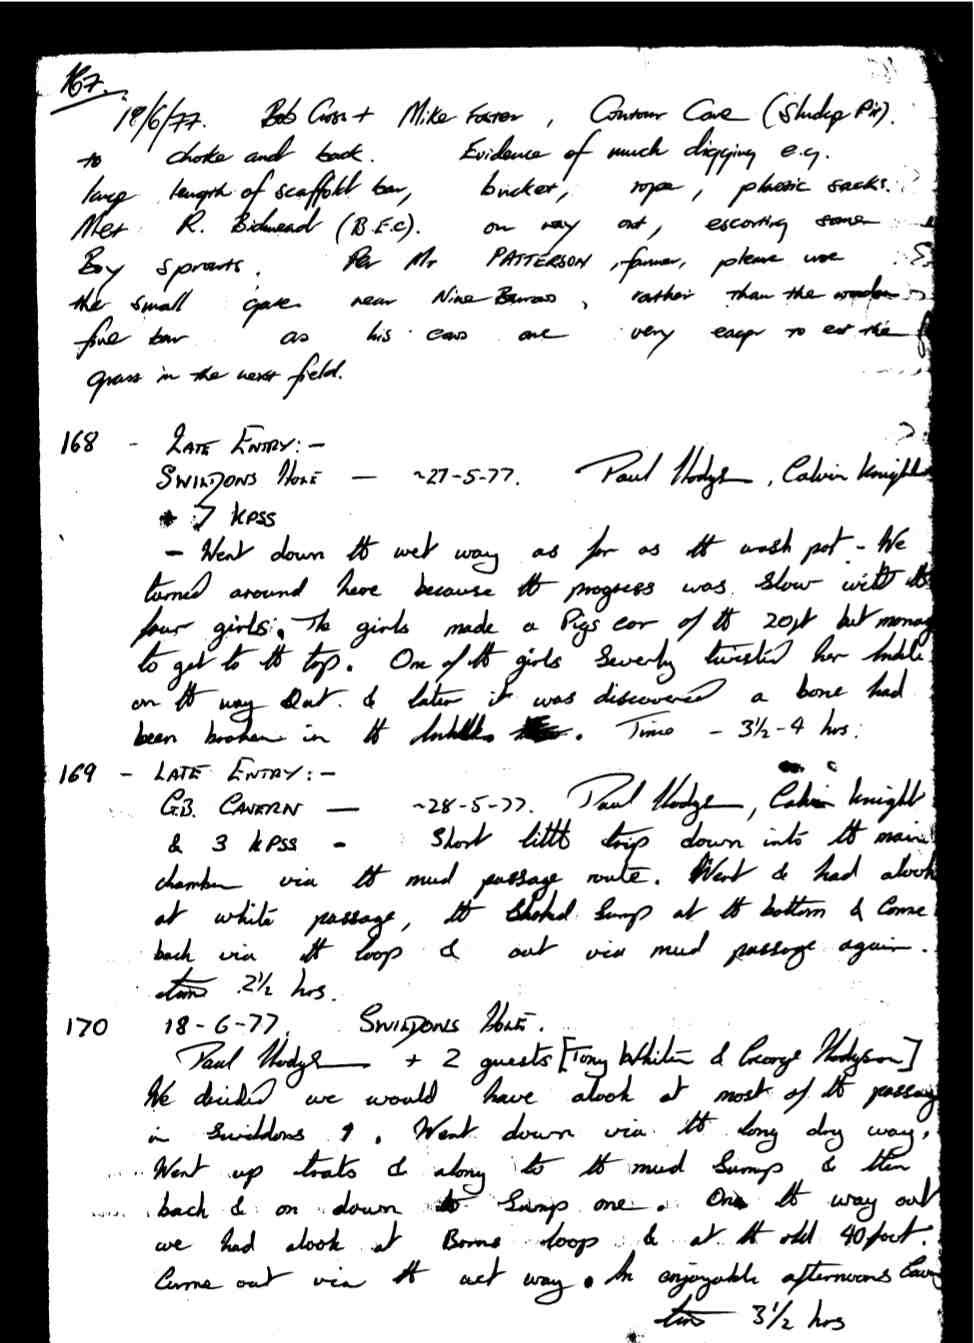 167.
18/6/77. Bob Cross + Mike Foster, Contour Cave (Sludge Pit).
to choke and back. Evidence of much digging e.g.
large length of scaffold bar, bucket, rope, plastic sacks.
Met R. Bidmead (B.E.C). on way out, escorting some
Boy Sprouts. Per Mr PATTERSON, farmer, please use
the small gate near Nine Barrows, rather than the wooden
five bar as his cows are very eager to eat the
grass in the next field.
168 - LATE ENTRY:-
SWILDONS HOLE — ~27-5-77. Paul Hodgson, Calvin Knight
+ 7 KPSS
- Went down tt wet way as far as tt wash pot - We
turned around here because tt progress was slow with tt
four girls. The girls made a Pigs ear of tt 20ft but manag
to get to tt top. One of tt girls Severly twisted her Ankle
on tt way Out. & later it was discovered a bone had
been broken in tt Ankle. Time - 3½-4 hrs.
169 - LATE ENTRY:-
G.B. CAVERN — ~28-5-77. Paul Hodgson, Calvin Knight
& 3 KPSS - Short little trip down into tt main
chamber via tt mud passage route. Went & had alook
at white passage, tt Choked Sump at tt bottom & Came
back via tt loop & out via mud passage again.
time 2½ hrs.
170 18-6-77. SWILDONS HOLE.
Paul Hodgson + 2 guests [Tony White & George Hodgson]
We decided we would have alook at most of tt passag
in Swildons 1. Went down via tt long dry way.
Went up trats & along to tt mud Sump & then
back & on down to Sump one. One tt way out
we had alook at Barns loop & at tt old 40 foot.
Came out via tt wet way. An enjoyable afternoons Cavin
time 3½ hrs